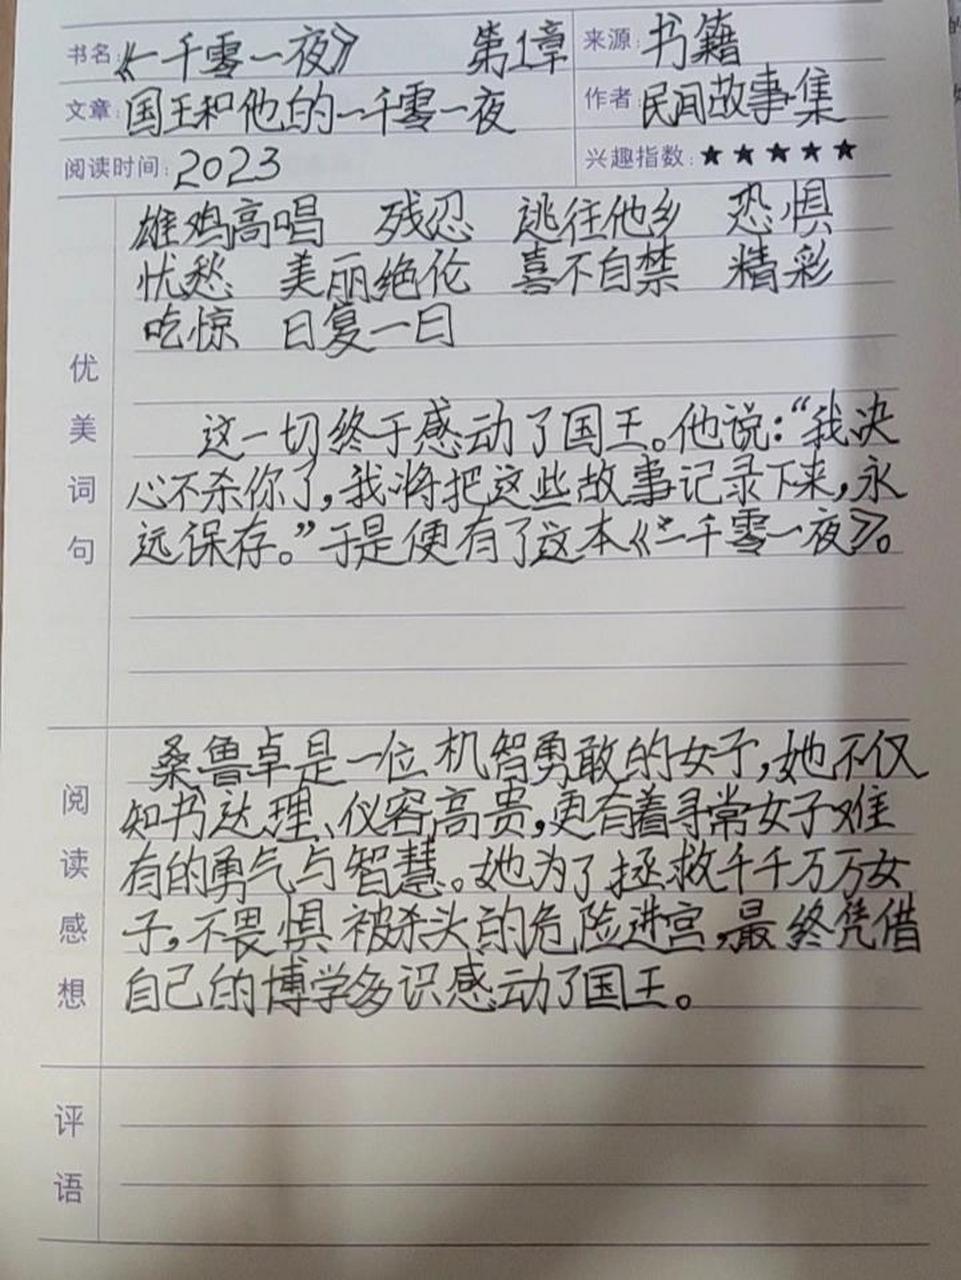 书名:《一千零一夜》 第1章 来源:书籍
文章:国王和他的一千零一夜 作者:民间故事集
阅读时间:2023 兴趣指数:★★★★★
优美词句
雄鸡高唱 残忍 逃往他乡 恐惧
忧愁 美丽绝伦 喜不自禁 精彩
吃惊 日复一日
这一切终于感动了国王。他说:“我决
心不杀你了,我将把这些故事记录下来,永
远保存。”于是便有了这本《一千零一夜》。
阅读感想
桑鲁卓是一位机智勇敢的女子,她不仅
知书达理、仪容高贵,更有着寻常女子难
有的勇气与智慧。她为了拯救千千万万女
子,不畏惧被杀头的危险进宫,最终凭借
自己的博学多识感动了国王。
评语